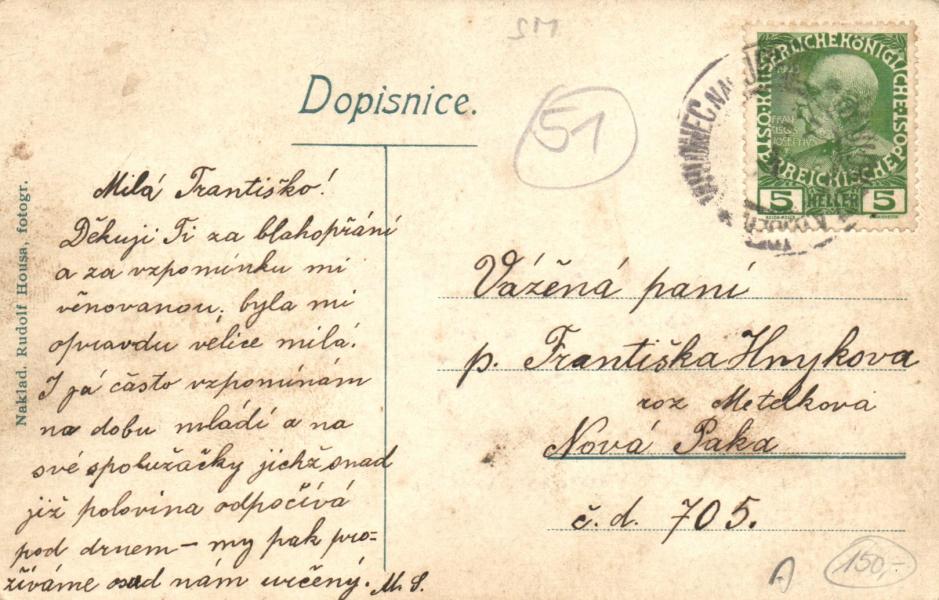 SM
51
Dopisnice.
Milá Františko!
Děkuji Ti za blahopřání
a za vzpomínku mi
věnovanou, byla mi
opravdu velice milá.
I já často vzpomínám
na dobu mládí a na
své spolužačky jichž snad
již polovina odpočívá
pod drnem – my pak pro=
žíváme osud nám určený. M. S.
Vážená paní
p. Františka Hnykova
roz Metelkova
Nová Paka
č. d. 705.
Naklad. Rudolf Housa, fotogr.
KAISERLICHE KÖNIGLICHE ÖSTERREICHISCHE POST
5 HELLER 5
A
150,-